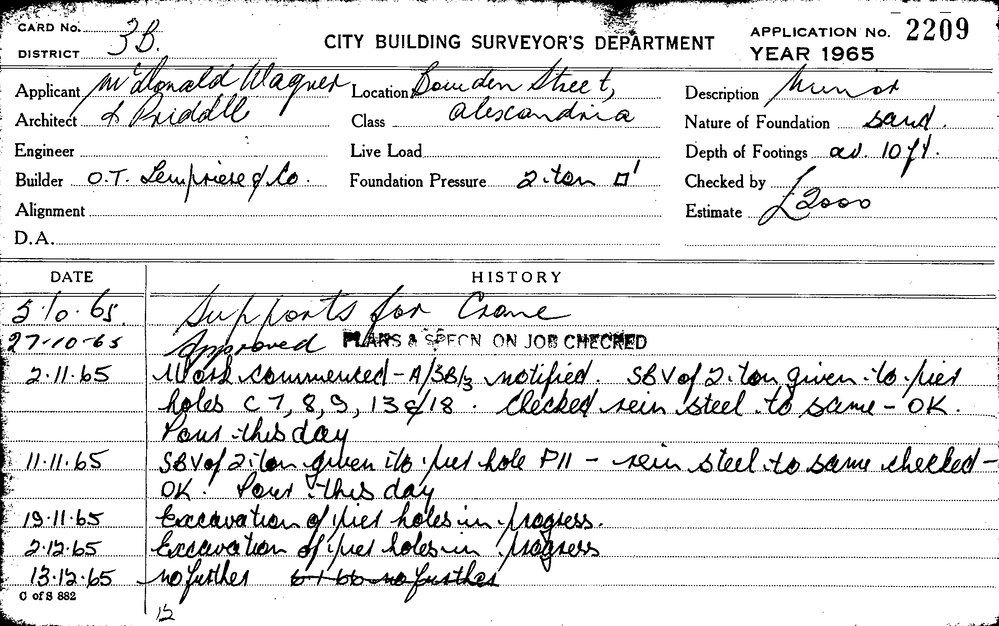 CARD No. 3B.
DISTRICT
CITY BUILDING SURVEYOR'S DEPARTMENT
APPLICATION No. 2209
YEAR 1965
Applicant McDonald Wagner Location Bowden Street, Description Minor
Architect & Priddle Class Alexandria Nature of Foundation sand.
Engineer Live Load Depth of Footings av. 10 ft.
Builder O.T. Lempriere & Co. Foundation Pressure 2 ton □' Checked by
Alignment Estimate £2000
D.A.
DATE HISTORY
5.10.65. Supports for Crane
27-10-65 Approved PLANS & SPECN ON JOB CHECKED
2.11.65 Work commenced - A/3B/3 notified. SBV of 2 ton given to pier
holes C 7, 8, 9, 13 & 18. Checked rein steel to same - OK.
Pour this day
11.11.65 SBV of 2 ton given to pier hole P11 - rein steel to same checked -
OK. Pour this day
19.11.65 Excavation of pier holes in progress.
2.12.65 Excavation of pier holes in progress
13.12.65 no further no further
C of S 882
12